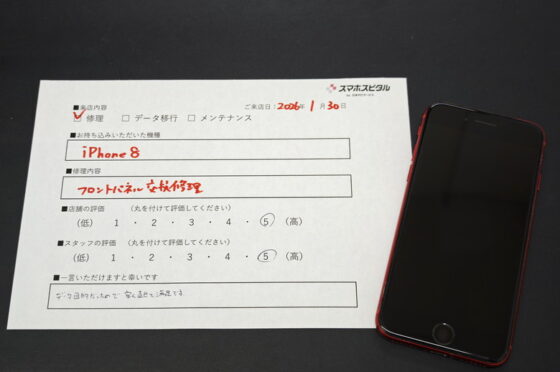 スマホスピタル
■来店内容
ご来店日：2026年 1月 30日
☑ 修理 □ データ移行 □ メンテナンス
■お持ち込みいただいた機種
iPhone8
■修理内容
フロントパネル交換修理
■店舗の評価 （丸を付けて評価してください）
（低） 1 ・ 2 ・ 3 ・ 4 ・ 5 （高）
■スタッフの評価 （丸を付けて評価してください）
（低） 1 ・ 2 ・ 3 ・ 4 ・ 5 （高）
■一言いただけますと幸いです
目的だったので 安く直って満足です